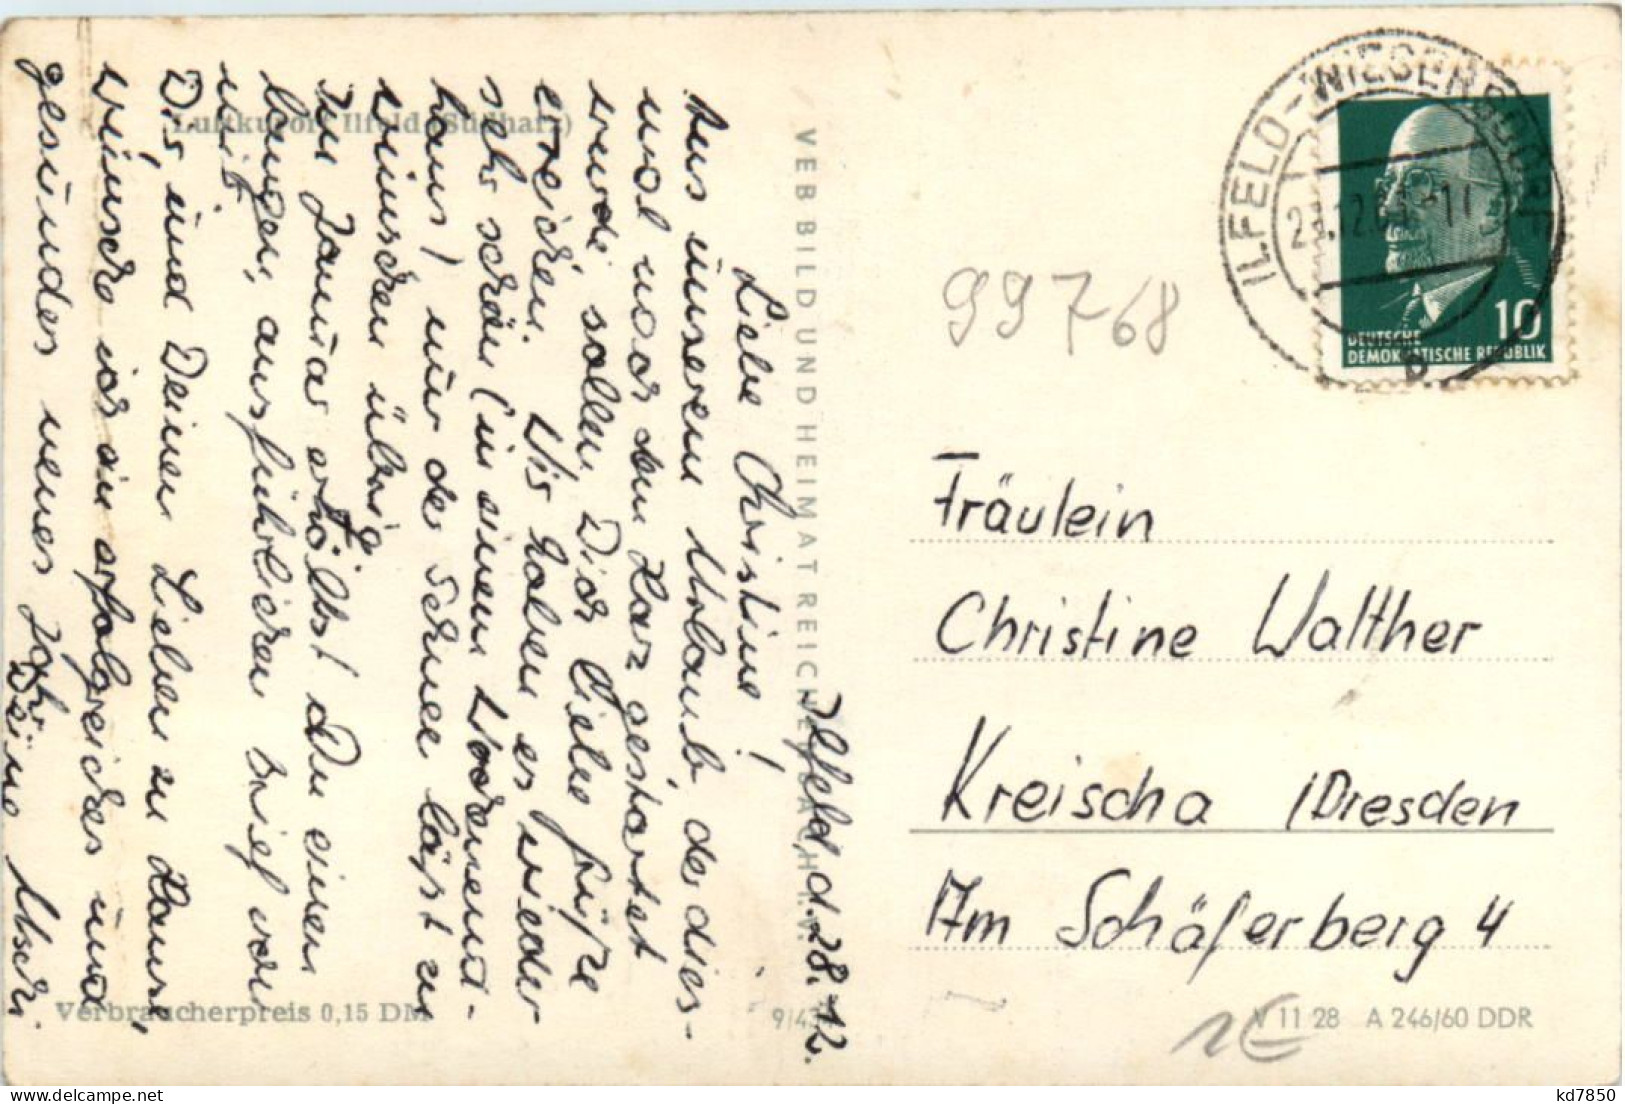 Luftkurort Ilfeld (Südharz)
Ilfeld d. 28.12.
Liebe Christine!
Aus unserem Urlaub, der dies-
mal nach dem Harz gestartet
wurde, sollen Dich liebe Grüße
erreichen. Wir haben es wieder
sehr schön (in einem Wochenend-
haus), nur der Schnee läßt zu
wünschen übrig.
Im Januar erhältst Du einen
langen, ausführlichen Brief von
mir.
Dir und Deinen Lieben zu Hause,
wünsche ich ein erfolgreiches und
gesundes neues Jahr.
Deine
Verbraucherpreis 0,15 DM
VEB BILD UND HEIMAT REICHENBACH I. V.
9/43
ILFELD-WIEGERSDORF
DEUTSCHE
DEMOKRATISCHE REPUBLIK
10
99768
Fräulein
Christine Walther
Kreischa /Dresden
Am Schäferberg 4
V 11 28 A 246/60 DDR
kd7850